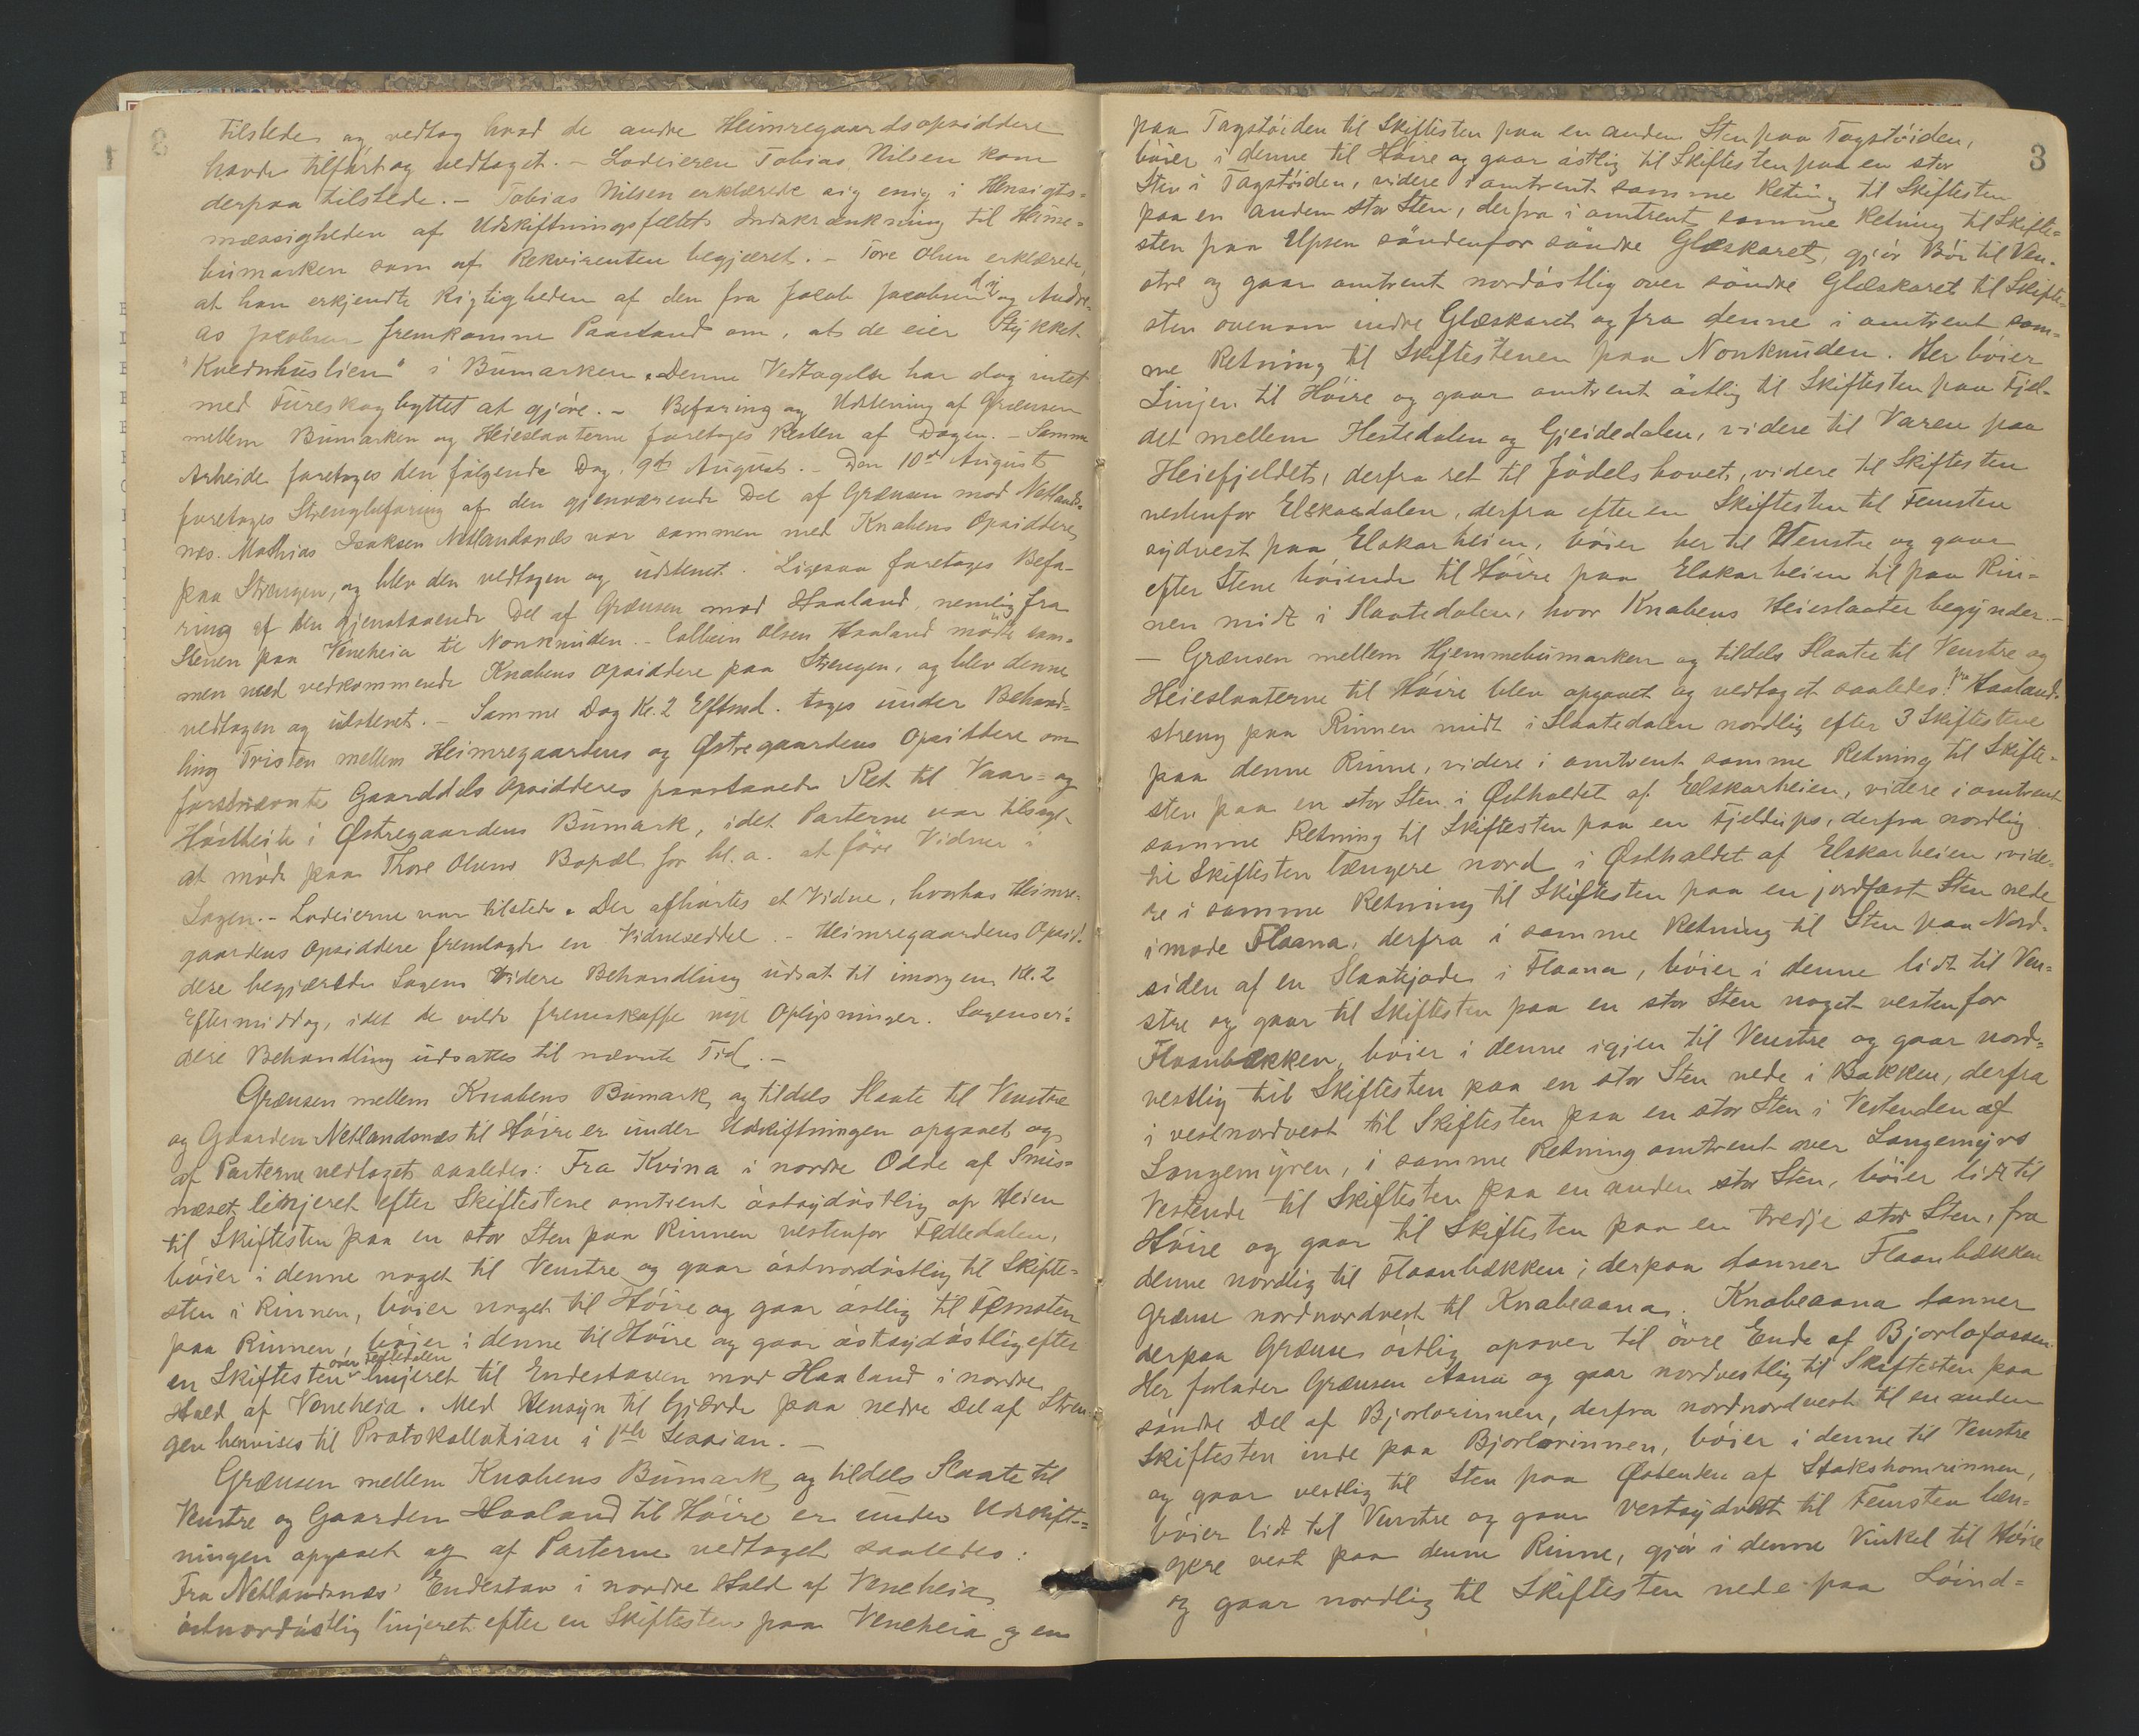 tilstede og vedtog hvad de andre Heimregaardsopsiddere
havde tilført og vedtaget. – Lodeieren Tobias Nilsen kom
derpaa tilstede. – Tobias Nilsen erklærede sig enig i Hensigts-
mæssigheden af Udskiftningsfeltets Indskrænkning til Heime-
bumarken som af Rekvirenten begjæret. – Tore Olsen erklærede,
at han erkjendte Rigtigheden af den fra Jacob Jacobsen og Andre-
as Jacobsen fremkomne Paastand om, at de eier Stykket
"Kvednhuslien" i Bumarken. Denne Vedtagelse har dog intet
med Fureskogbyttet at gjøre. – Befaring og Udstening af Grænsen
mellem Bumarken og Heieslaaterne foretages Resten af Dagen. – Samme
Arbeide foretages den følgende Dag, 9de August. – Den 10de August
foretages Strengbefaring af den gjenværende Del af Grænsen mod Netlands-
næs. Mathias Isaksen Netlandsnæs var sammen med Knabens Opsiddere
paa Strengen, og blev den vedtagen og udstenet. Ligesaa foretages Befa-
ring af den gjenstaaende Del af Grænsen mod Haaland, nemlig fra
Stenen paa Veneheia til Nonknuden. – Collbein Olsen Haaland mødte sam-
men med vedkommende Knabens Opsiddere paa Strengen, og blev denne
vedtagen og udstenet. – Samme Dag Kl. 2 Eftmd. toges under Behand-
ling Tvisten mellem Heimregaardens og Østregaardens Opsiddere om
førstnævnte Gaarddels Opsidderes paastaaede Ret til Vaar- og
Høstbeite i Østregaardens Bumark, idet Parterne var tilsagt
at møde paa Thore Olsens Bopæl for bl. a. at føre Vidner i
Sagen. – Lodeierne var tilstede. Der afhørtes et Vidne, hvorhos Heimre-
gaardens Opsiddere fremlagde en Vidneseddel. – Heimregaardens Opsid-
dere begjærede Sagens videre Behandling udsat til imorgen Kl. 2
Eftermiddag, idet de vilde fremskaffe nye Oplysninger. Sagens vi-
dere Behandling udsattes til nævnte Tid. –
Grænsen mellem Knabens Bumark og tildels Slaate til Venstre
og Gaarden Netlandsnæs til Høire er under Udskiftningen opgaaet og
af Parterne vedtaget saaledes: Fra Kvina i nordre Odde af Smis-
næset linjeret efter Skiftestene omtrent østsydøstlig op Heien
til Skiftesten paa en stor Sten paa Rinnen vestenfor Fedledalen,
bøier i denne noget til Venstre og gaar østnordøstlig til Skifte-
sten i Rinnen, bøier noget til Høire og gaar østlig til Femsten
paa Rinnen, bøier i denne til Høire og gaar østsydøstlig efter
en Skiftesten over Fedledalen linjeret til Endestaven mod Haaland i nordre
Hald af Veneheia. Med Hensyn til Gjærde paa nedre Del af Stren-
gen henvises til Protokollation i 1ste Session. –
Grænsen mellem Knabens Bumark og tildels Slaate til
Venstre og Gaarden Haaland til Høire er under Udskift-
ningen opgaaet og af Parterne vedtaget saaledes:
Fra Netlandsnæs' Endestav i nordre Hald af Veneheia
østnordøstlig linjeret efter en Skiftesten paa Veneheia og en
3
paa Tagstøiden til Skiftesten paa en anden Sten paa Tagstøiden,
bøier i denne til Høire og gaar østlig til Skiftesten paa en stor
Sten i Tagstøiden, videre i omtrent samme Retning til Skiftesten
paa en anden stor Sten, derfra i omtrent samme Retning til Skifte-
sten paa Upsen søndenfor søndre Glæskaret, gjør Bøi til Ven-
stre og gaar omtrent nordøstlig over søndre Glæskaret til Skifte-
sten ovenom indre Glæskaret og fra denne i omtrent sam-
me Retning til Skiftestenen paa Nonknuden. Her bøier
Linjen til Høire og gaar omtrent østlig til Skiftesten paa Fjel-
det mellem Hestedalen og Gjeidedalen, videre til Varen paa
Heiefjeldet, derfra ret til Jødelshovet, videre til Skiftesten
vestenfor Elskardalen, derfra efter en Skiftesten til Femsten
sydvest paa Elskarheien, bøier her til Venstre og gaar
efter Stene bøiende til Høire paa Elskarheien til paa Rin-
nen midt i Slaatedalen, hvor Knabens Heieslaater begynder. –
– Grænsen mellem Hjemmebumarken og tildels Slaatee til Venstre og
Heieslaaterne til Høire blev opgaaet og vedtaget saaledes: Fra Haaland-
streng paa Rinnen midt i Slaatedalen nordlig efter 3 Skiftestene
paa denne Rinne, videre i omtrent samme Retning til Skifte-
sten paa en stor Sten i Østhaldet af Elskarheien, videre i omtrent
samme Retning til Skiftesten paa en Fjeldups, derfra nordlig
til Skiftesten længere nord i Østhaldet af Elskarheien, vide-
re i samme Retning til Skiftesten paa en jordfast Sten nede
imod Flaana, derfra i samme Retning til Sten paa Nord-
siden af en Slaatejode i Flaana, bøier i denne lidt til Ven-
stre og gaar til Skiftesten paa en stor Sten noget vestenfor
Flaanbækken, bøier i denne igjen til Venstre og gaar nord-
vestlig til Skiftesten paa en stor Sten nede i Bakken, derfra
i vestnordvest til Skiftesten paa en stor Sten i Vestenden af
Langemyren, i samme Retning omtrent over Langemyrs
Vestende til Skiftesten paa en anden stor Sten, bøier lidt til
Høire og gaar til Skiftesten paa en tredje stor Sten, fra
denne nordlig til Flaanbækken; derpaa danner Flaanbækken
Grænse nordnordvest til Knabeaana. Knabeaana danner
derpaa Grænse østlig opover til øvre Ende af Bjorlofossen.
Her forlader Grænsen Aana og gaar nordvestlig til Skiftesten paa
søndre Del af Bjorlorinnen, derfra nordnordvest til en anden
Skiftesten inde paa Bjorlorinnen, bøier i denne til Venstre
og gaar vestlig til Sten paa Østenden af Stakshomrinnen,
bøier lidt til Venstre og gaar vestsydvest til Femsten læn-
gere vest paa denne Rinne, gjør i denne Vinkel til Høire
og gaar nordlig til Skiftesten nede paa Løind-